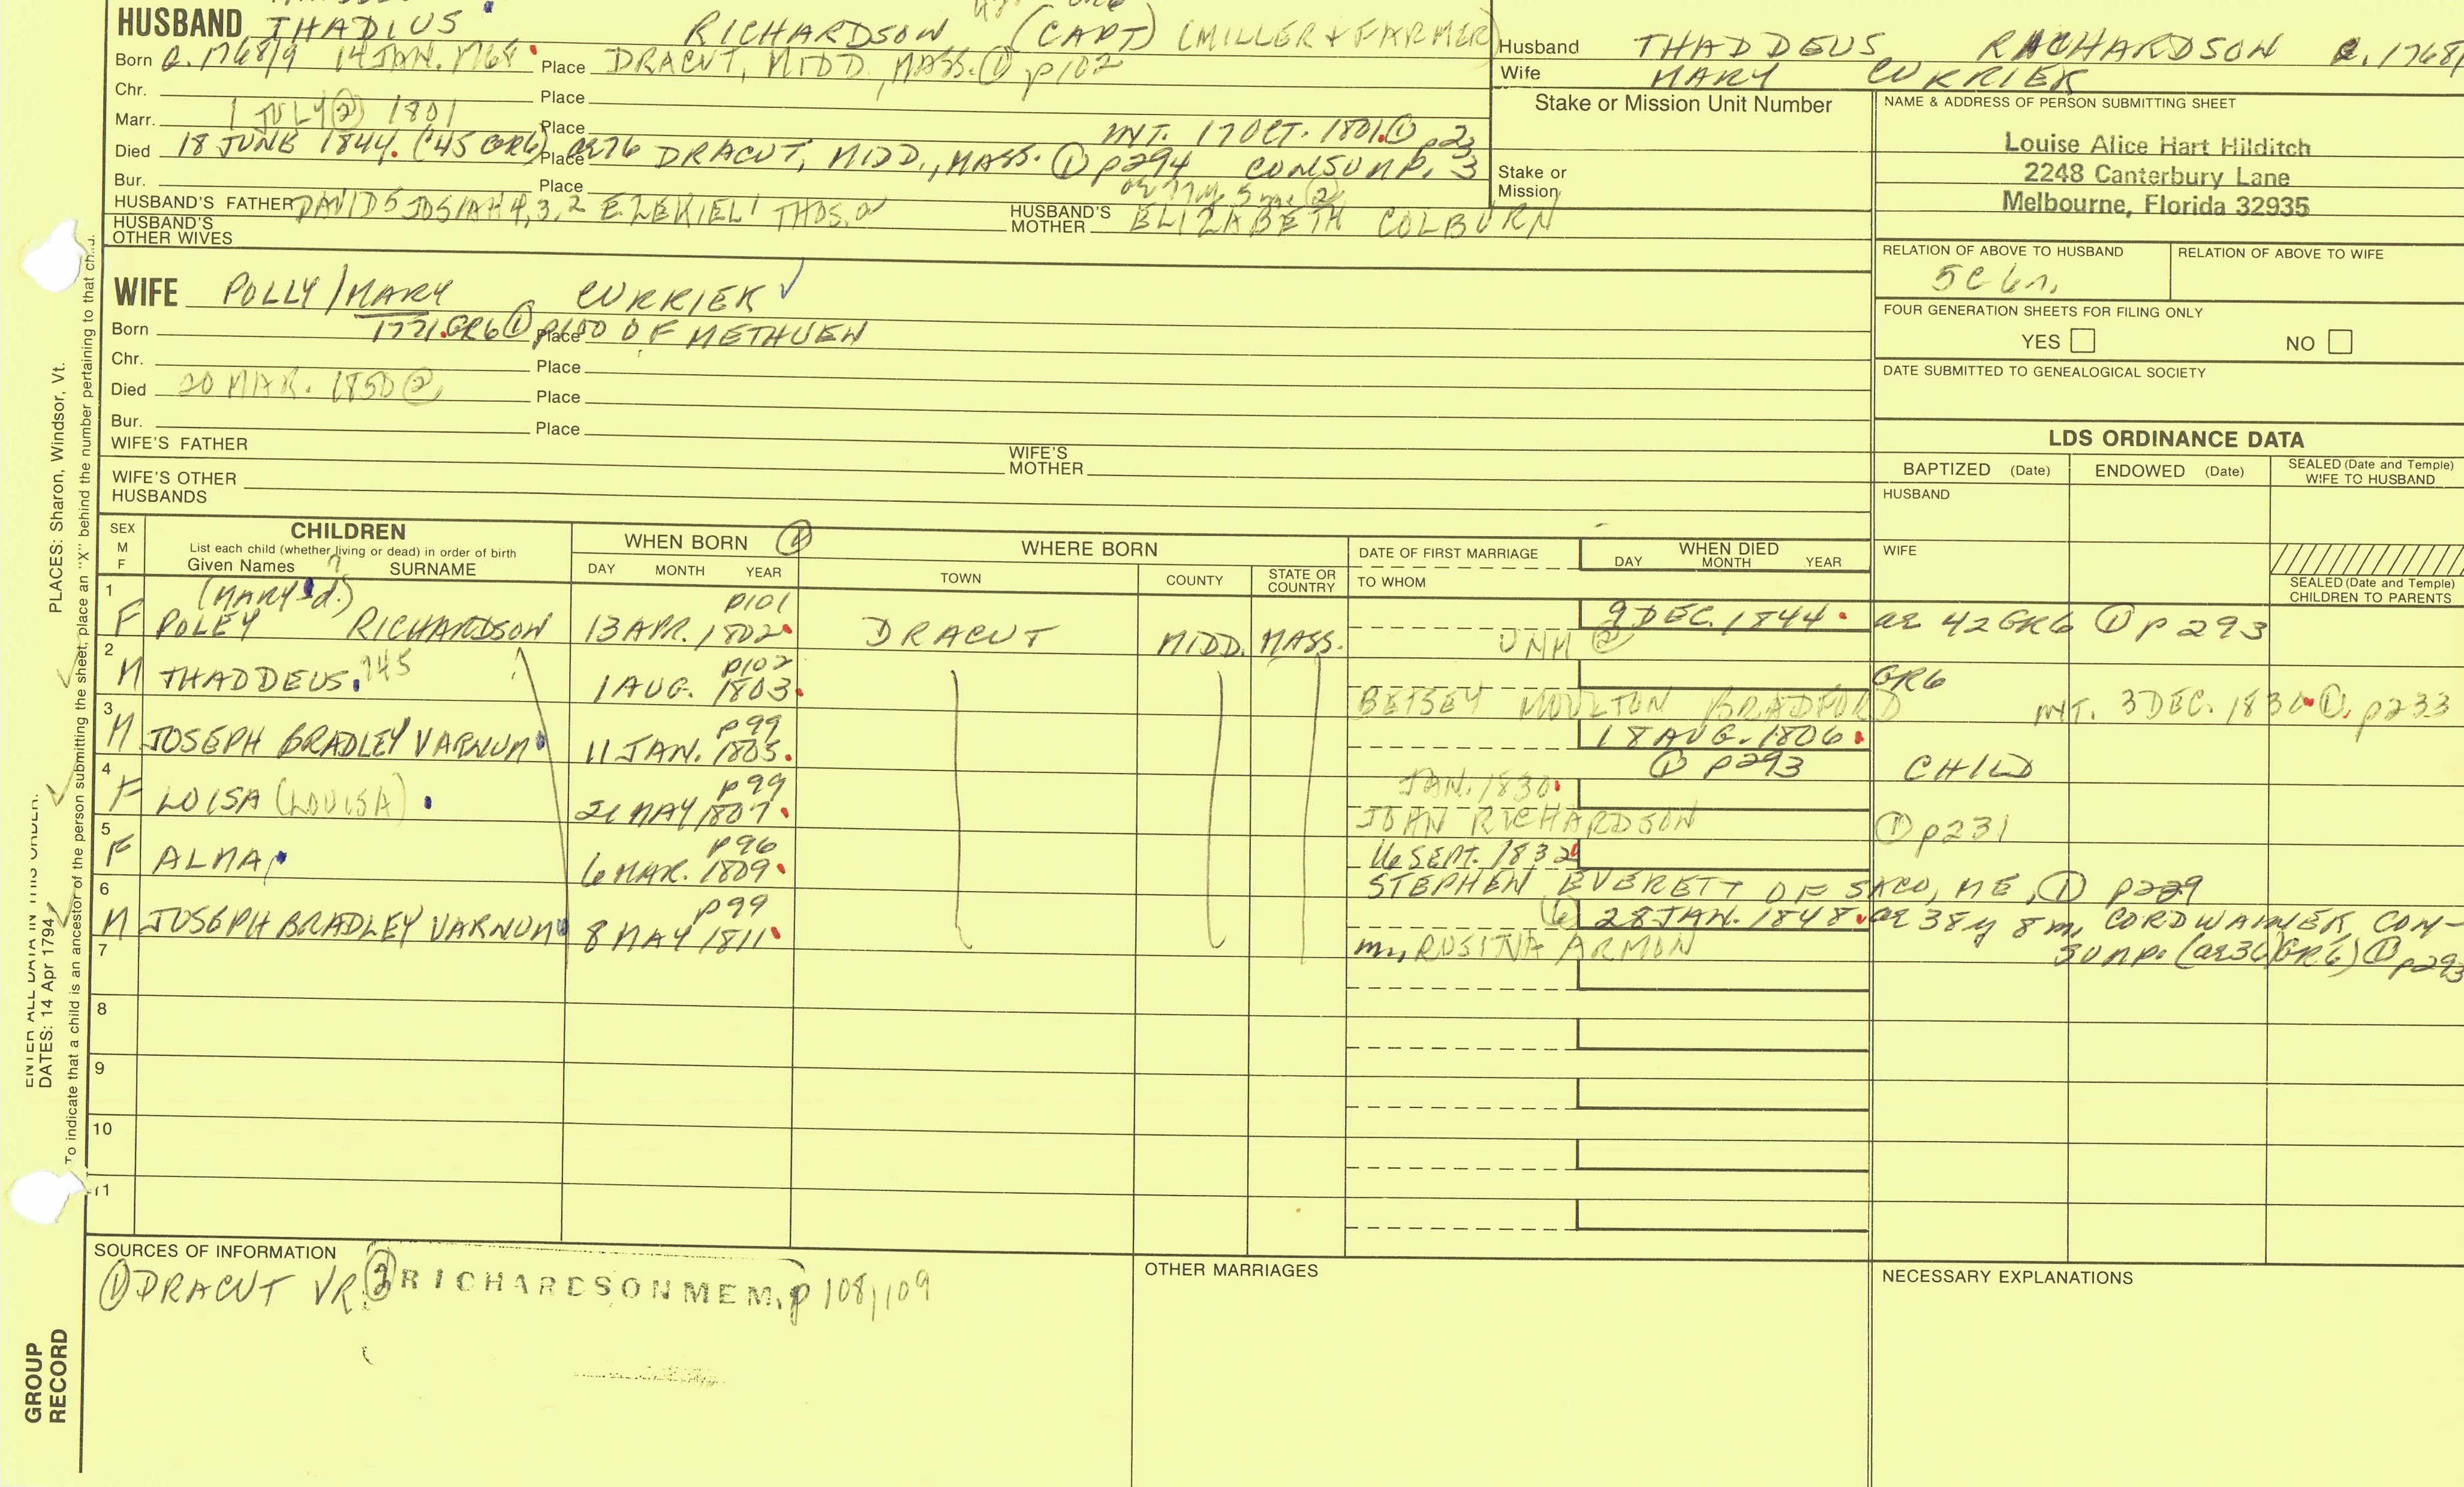 HUSBAND THADIUS RICHARDSON (CAPT) (MILLER + FARMER)
Born B. 1768/9 14 JAN. 1768 Place DRACUT, MIDD, MASS. ① p102
Chr. Place
Marr. 1 JULY ② 1801 Place MVT. 17 OCT. 1801. ① p233
Died 18 JUNE 1844. ('45 GR6) Place ae 76 DRACUT, MIDD., MASS. ① p294 CONSUMP.
Bur. Place ae 77y 5 mo ②
HUSBAND'S FATHER DAVID 5 JOSIAH 4,3,2 EZEKIEL 1 THOS. 0 HUSBAND'S MOTHER ELIZABETH COLBURN
HUSBAND'S OTHER WIVES
WIFE POLLY/MARY CURRIER ✓
Born 1771. GR6 ① p100 Place OF METHUEN
Chr. Place
Died 20 MAR. 1850 ② Place
Bur. Place
WIFE'S FATHER WIFE'S MOTHER
WIFE'S OTHER HUSBANDS
Husband THADDEUS RICHARDSON B. 1768/
Wife MARY CURRIER
Stake or Mission Unit Number
Stake or Mission
NAME & ADDRESS OF PERSON SUBMITTING SHEET
Louise Alice Hart Hilditch
2248 Canterbury Lane
Melbourne, Florida 32935
RELATION OF ABOVE TO HUSBAND RELATION OF ABOVE TO WIFE
5C 6r.
FOUR GENERATION SHEETS FOR FILING ONLY
YES NO
DATE SUBMITTED TO GENEALOGICAL SOCIETY
LDS ORDINANCE DATA
BAPTIZED (Date) ENDOWED (Date) SEALED (Date and Temple) WIFE TO HUSBAND
HUSBAND
WIFE
SEALED (Date and Temple) CHILDREN TO PARENTS
SEX M F CHILDREN WHEN BORN ① WHERE BORN DATE OF FIRST MARRIAGE WHEN DIED
List each child (whether living or dead) in order of birth
Given Names SURNAME DAY MONTH YEAR TOWN COUNTY STATE OR COUNTRY TO WHOM DAY MONTH YEAR
1 (MARY d.) ? p101 9 DEC. 1844. ae 42 GR6 ① p293
F POLEY RICHARDSON 13 APR. 1802. DRACUT MIDD. MASS. UNM ②
2 p102 GR6
M THADDEUS. 745 1 AUG. 1803. BETSEY MOULTON BRADFORD MVT. 3 DEC. 1830. ①, p233
3 p99 18 AUG. 1806.
M JOSEPH BRADLEY VARNUM 11 JAN. 1805. ① p293 CHILD
4 p99 JAN. 1830.
F LOISA (LOUISA). 21 MAY 1807. JOHN RICHARDSON ① p231
5 p96 16 SEPT. 1832
F ALMA 6 MAR. 1809. STEPHEN EVERETT OF SACO, ME, ① p229
6 p99 (6) 28 JAN. 1848. ae 38y 8m, CORDWAINER, CON-
M JOSEPH BRADLEY VARNUM 8 MAY 1811. m, ROSINA ARMON SUMP. (ae 36 GR6) ① p293
7
8
9
10
11
SOURCES OF INFORMATION OTHER MARRIAGES NECESSARY EXPLANATIONS
① DRACUT VR ② RICHARDSON MEM. p 108, 109
PLACES: Sharon, Windsor, Vt.
ENTER ALL DATA IN THIS ORDER:
DATES: 14 Apr 1794
To indicate that a child is an ancestor of the person submitting the sheet, place an "X" behind the number pertaining to that child.
GROUP RECORD